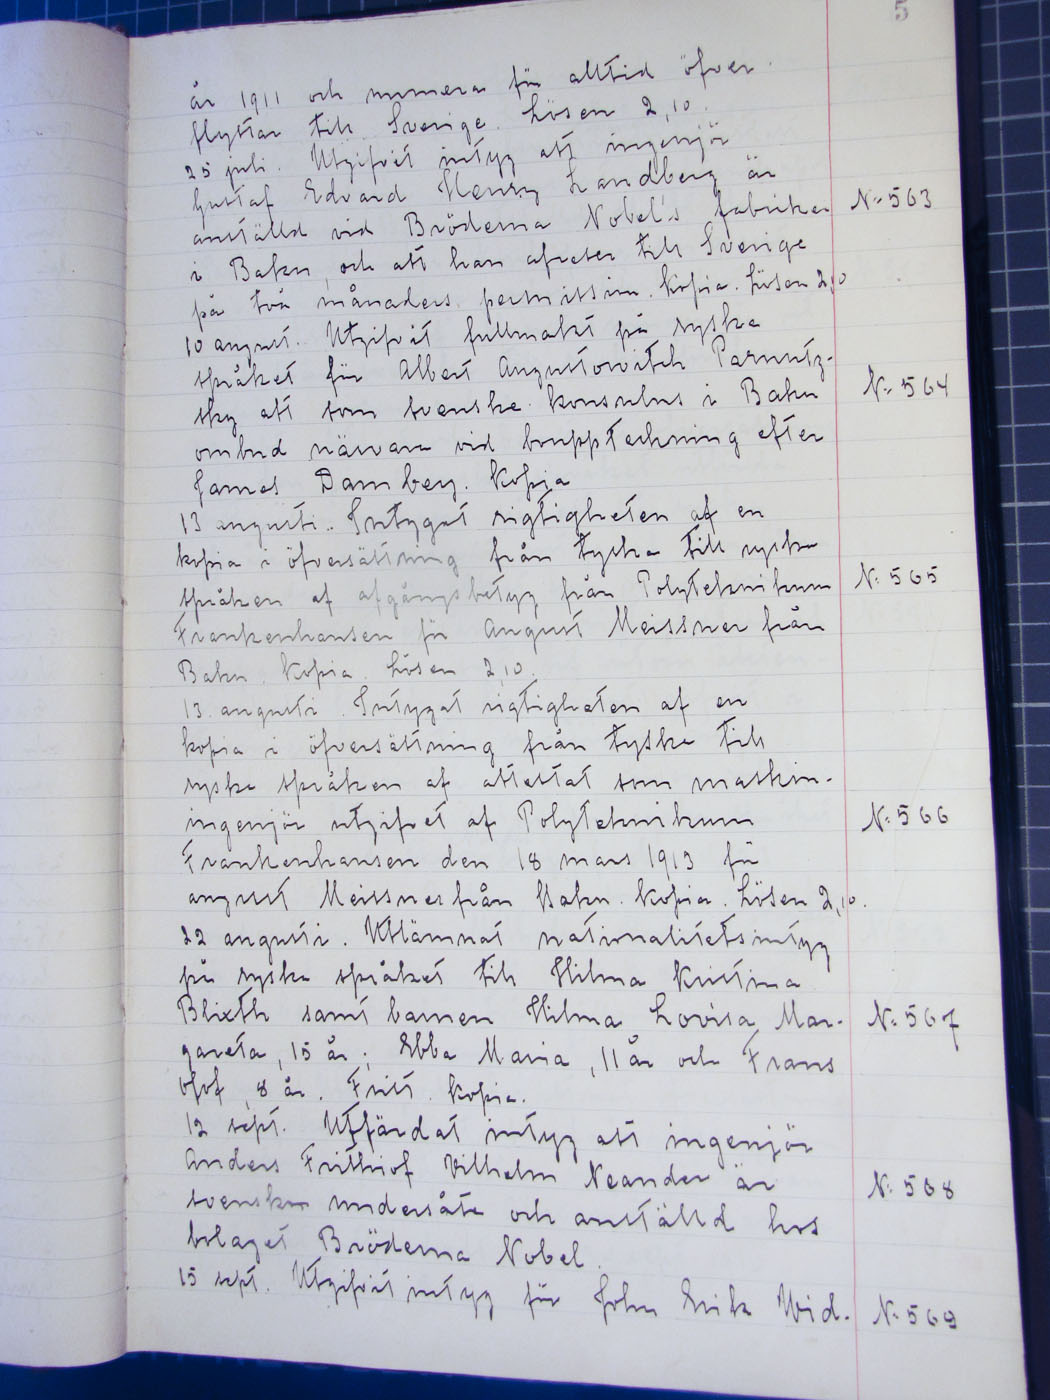 5
år 1911 och numera för alltid öfver
flyttar till Sverige. Lösen 2,10.
25 juli. Utgifvit intyg att ingenjör
Gustaf Edvard Henry Landberg är
anställd vid Bröderna Nobel's fabriker N: 563
i Baku, och att han afreser till Sverige
på två månaders permission. Kopia. Lösen 2,10
10 august. Utgifvit fullmakt på ryska
språket för Albert Augustowitch Parnutz-
sky att som svenske konsulns i Baku N: 564
ombud närvara vid bouppteckning efter
James Damberg. Kopia
13 augusti. Intygat rigtigheten af en
kopia i öfversättning från tyska till ryska
språken af afgångsbetyg från Polyteknikum N: 565
Frankenhausen för August Meissner från
Baku. Kopia. Lösen 2,10.
13. augusti. Intygat rigtigheten af en
kopia i öfversättning från tyska till
ryska språken af attestat som maskin-
ingenjör utgifvet af Polyteknikum N: 566
Frankenhausen den 18 mars 1913 för
august Meissner från Baku. Kopia. Lösen 2,10.
22 augusti. Utlämnat nationalitetsintyg
på ryska språket till Hilma Kristina
Blixth samt barnen Hilma Lovisa Mar- N: 567
gareta, 15 år; Ebba Maria, 11 år och Frans
Olof, 8 år. Fritt. Kopia.
12 sept. Utfärdat intyg att ingenjör
Anders Frithiof Vilhelm Neander är
svensk undersåte och anställd hos N: 568
bolaget Bröderna Nobel.
15 sept. Utgifvit intyg för John Erik Wid- N: 569